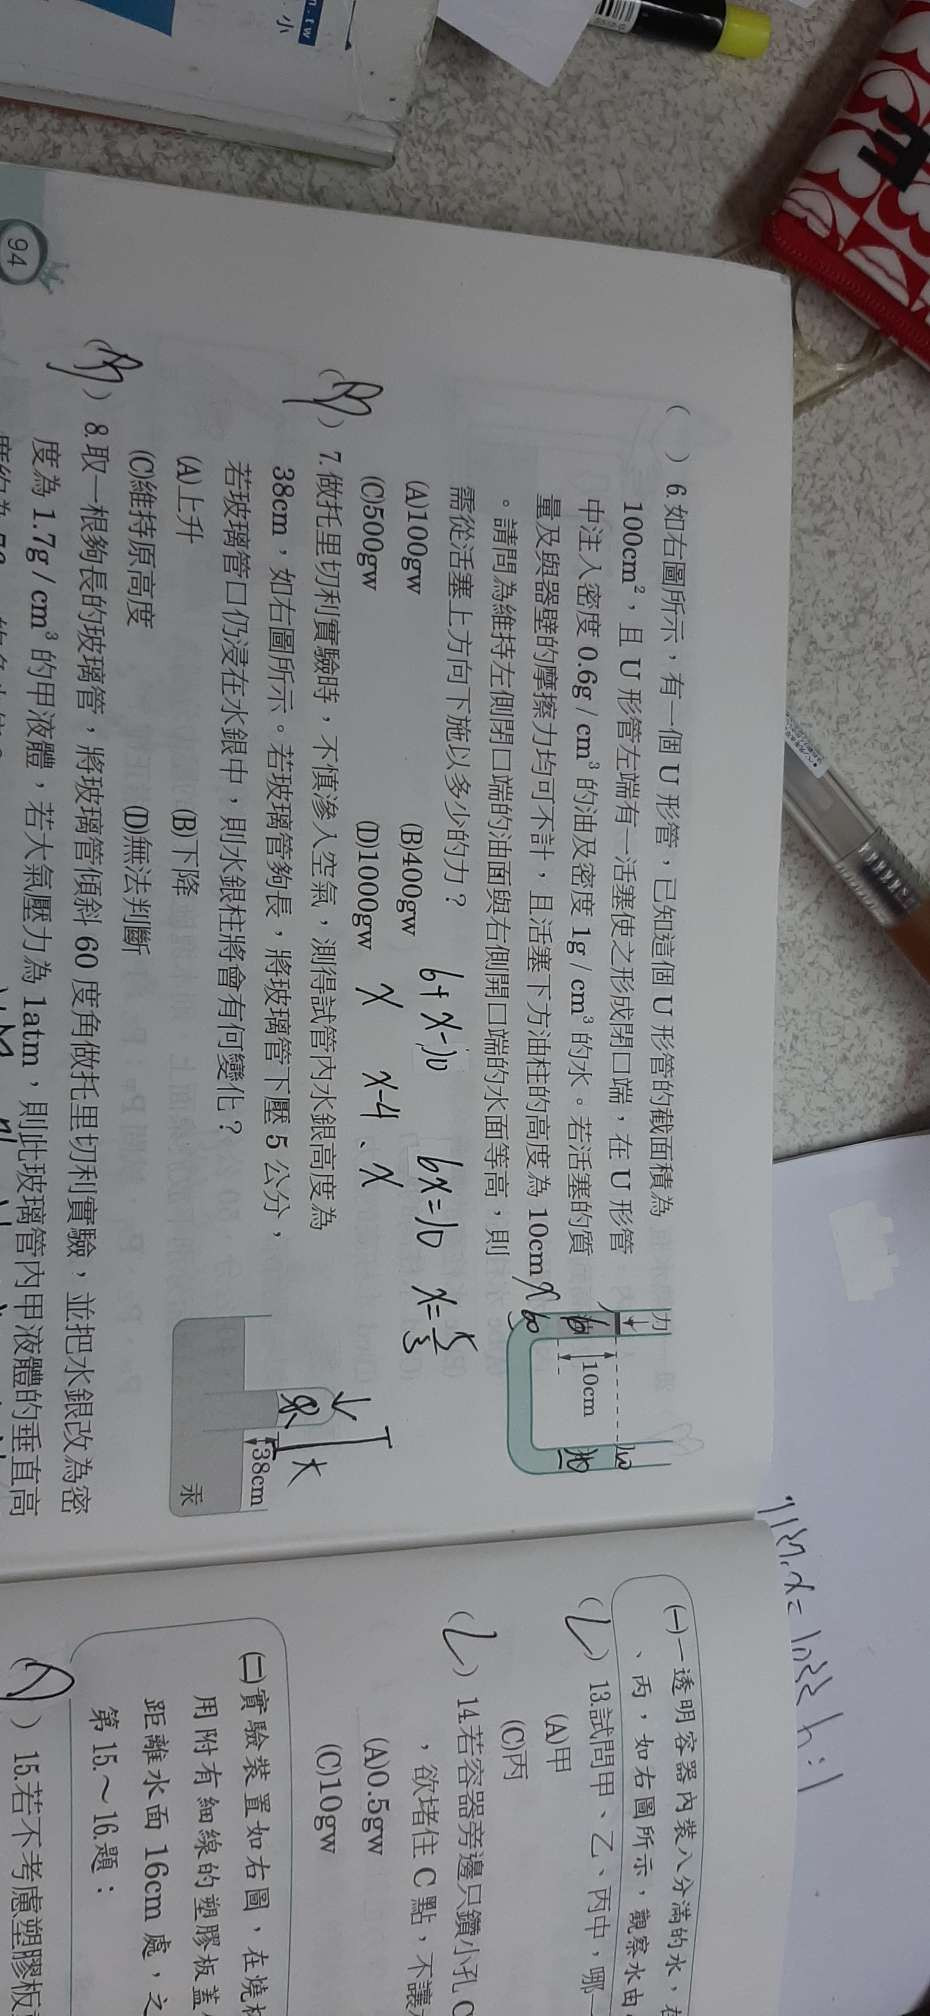 ( ) 6.如右圖所示，有一個 U 形管，已知這個 U 形管的截面積為
100cm²，且 U 形管左端有一活塞使之形成閉口端，在 U 形管
中注入密度 0.6g / cm³ 的油及密度 1g / cm³ 的水。若活塞的質
量及與器壁的摩擦力均可不計，且活塞下方油柱的高度為 10cm
。請問為維持左側閉口端的油面與右側開口端的水面等高，則
需從活塞上方向下施以多少的力？
(A)100gw (B)400gw
(C)500gw (D)1000gw
力
10cm
6+x=10
6x=10 x=5/3
x x-4、x
(B) 7.做托里切利實驗時，不慎滲入空氣，測得試管內水銀高度為
38cm，如右圖所示。若玻璃管夠長，將玻璃管下壓 5 公分，
若玻璃管口仍浸在水銀中，則水銀柱將會有何變化？
(A)上升 (B)下降
(C)維持原高度 (D)無法判斷
38cm
汞
(B) 8.取一根夠長的玻璃管，將玻璃管傾斜 60 度角做托里切利實驗，並把水銀改為密
度為 1.7g / cm³ 的甲液體，若大氣壓力為 1atm，則此玻璃管內甲液體的垂直高
94
(一)一透明容器內裝八分滿的水，在
、丙，如右圖所示，觀察水由
13.試問甲、乙、丙中，哪一
(A)甲
(C)丙
14.若容器旁邊只鑽小孔 C
，欲堵住 C 點，不讓
(A)0.5gw
(C)10gw
(二)實驗裝置如右圖，在燒杯
用附有細線的塑膠板蓋
距離水面 16cm 處，之
第 15.～16.題：
15.若不考慮塑膠板